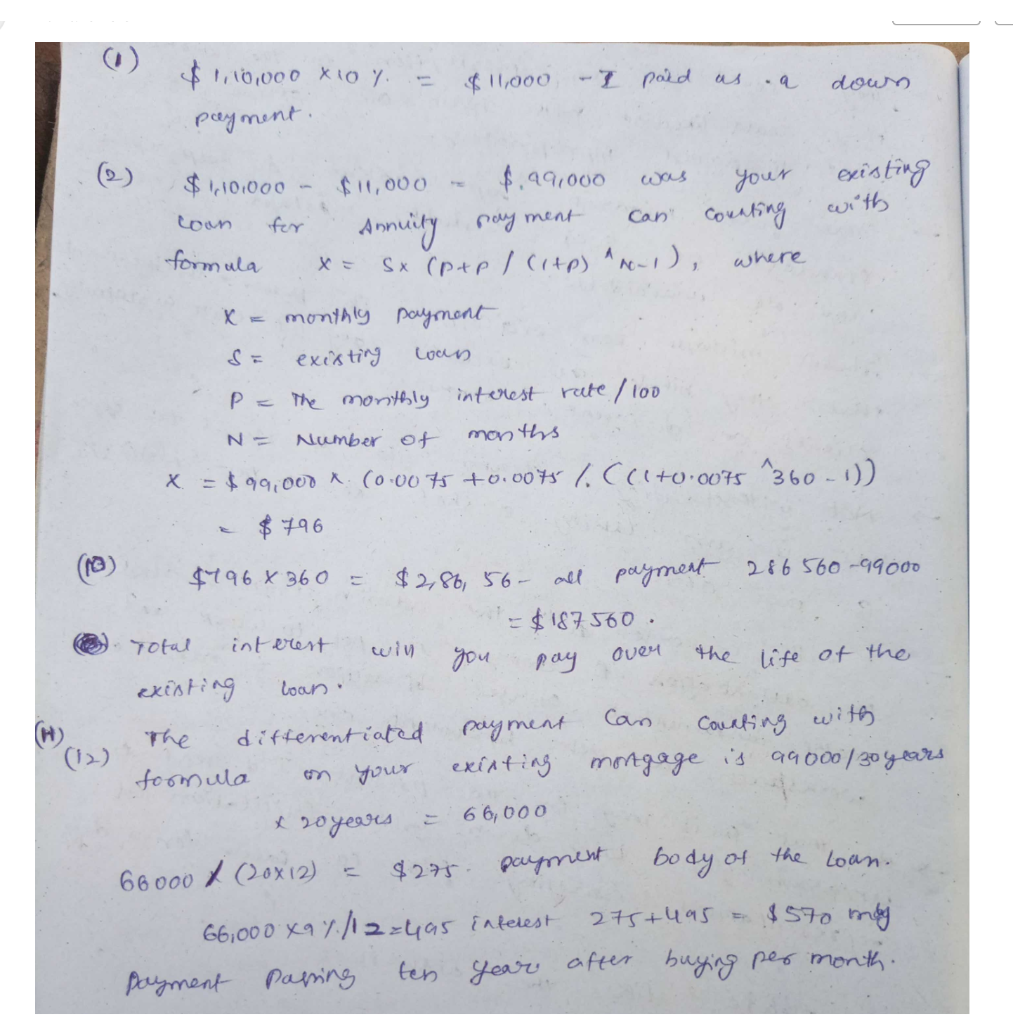 (1) $ 1,10,000 x 10 %. = $ 11,000 - I paid as a down
payment.
(2) $ 1,10,000 - $11,000 = $.99,000 was your existing
loan for Annuity payment can counting with
formula X = S x (P+P / (1+P) ^N-1), where
X = monthly payment
S = existing loan
P = The monthly interest rate / 100
N = Number of months
X = $99,000 x (0.0075 + 0.0075 /. ((1+0.0075 ^360 - 1))
= $ 796
(10) $796 x 360 = $ 2,86, 56- all payment 286 560 - 99000
= $ 187 560 .
Total interest will you pay over the life of the
existing loan.
(11) The differentiated payment can counting with
(12) formula on your existing mortgage is 99000/30 years
x 20 years = 66,000
66000 / (20x12) = $275. payment body of the loan.
66,000 x 9 %./12 = 495 interest 275 + 495 = $ 570 my
payment passing ten year after buying per month.